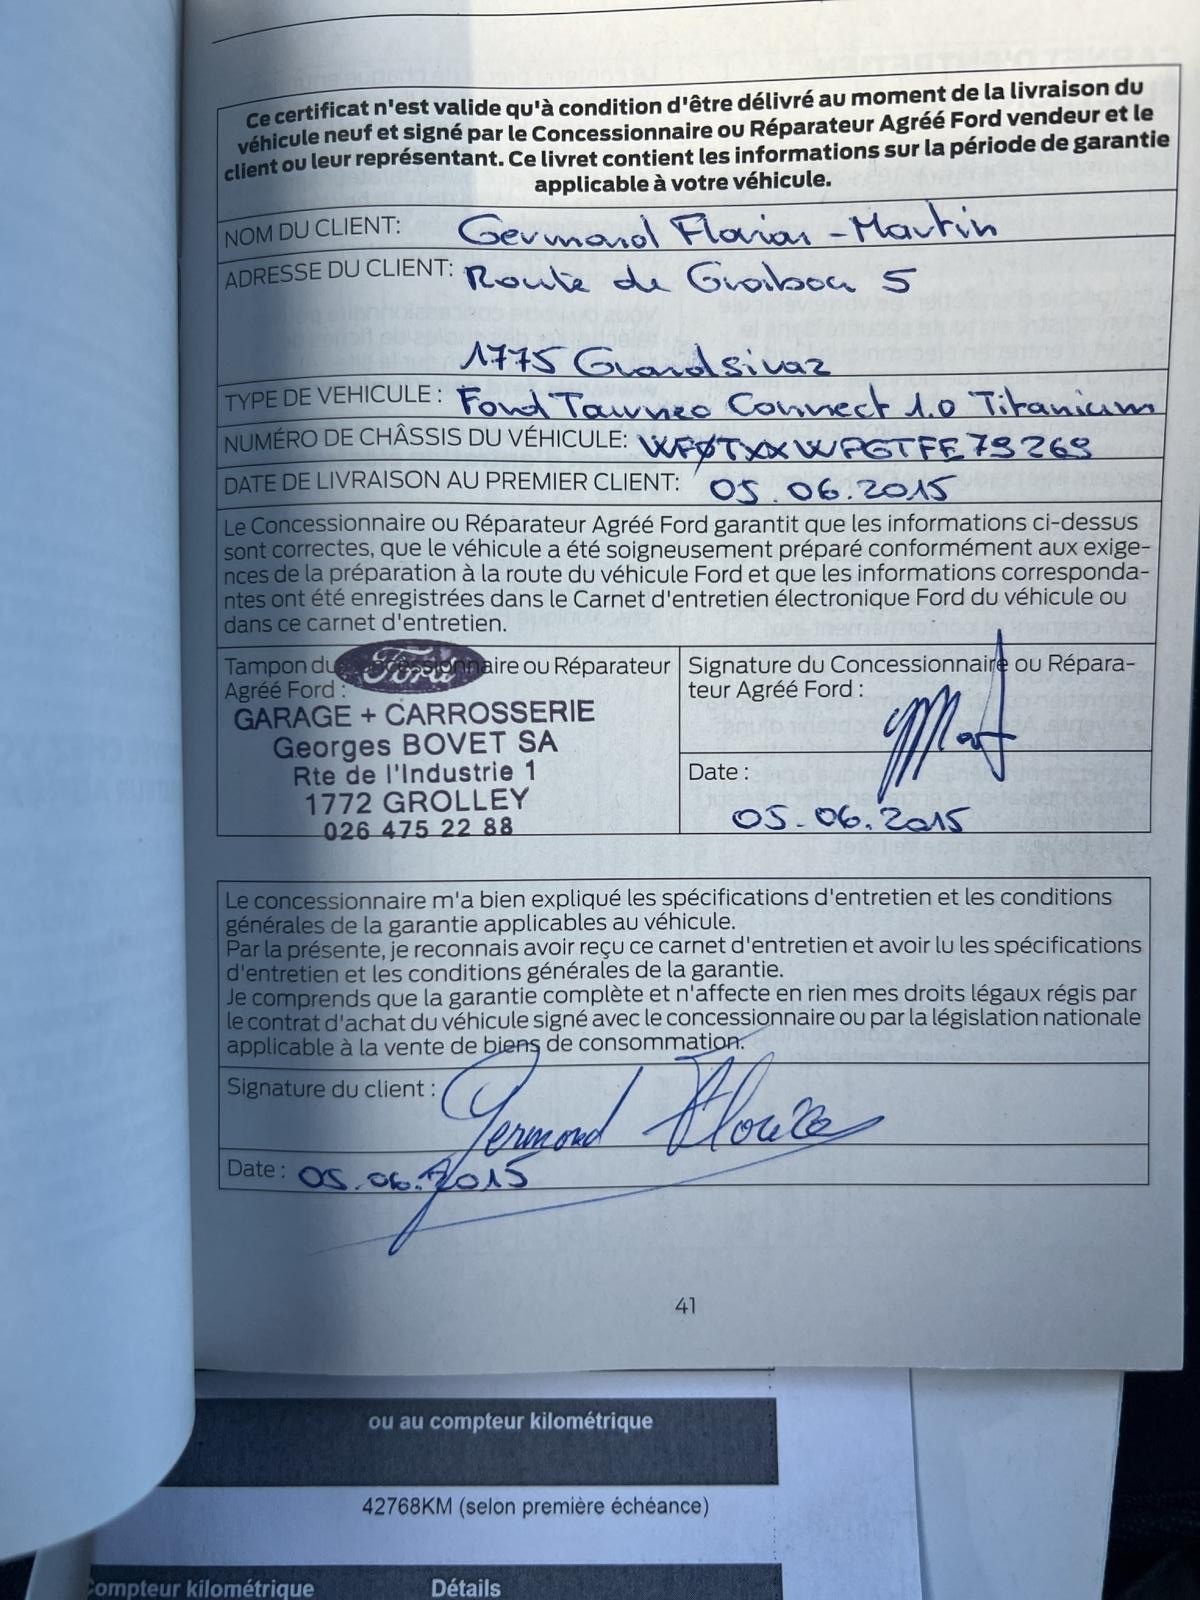 Ce certificat n'est valide qu'à condition d'être délivré au moment de la livraison du
véhicule neuf et signé par le Concessionnaire ou Réparateur Agréé Ford vendeur et le
client ou leur représentant. Ce livret contient les informations sur la période de garantie
applicable à votre véhicule.
NOM DU CLIENT: Germond Florian-Martin
ADRESSE DU CLIENT: Route de 5
1775 Grandsivaz
TYPE DE VEHICULE : Ford Tourneo Connect 1.0 Titanium
NUMÉRO DE CHÂSSIS DU VÉHICULE: WFØTXXWPGTFE79269
DATE DE LIVRAISON AU PREMIER CLIENT: 05.06.2015
Le Concessionnaire ou Réparateur Agréé Ford garantit que les informations ci-dessus
sont correctes, que le véhicule a été soigneusement préparé conformément aux exige-
nces de la préparation à la route du véhicule Ford et que les informations corresponda-
ntes ont été enregistrées dans le Carnet d'entretien électronique Ford du véhicule ou
dans ce carnet d'entretien.
Tampon du Concessionnaire ou Réparateur
Agréé Ford :
Ford
GARAGE + CARROSSERIE
Georges BOVET SA
Rte de l'Industrie 1
1772 GROLLEY
026 475 22 88
Signature du Concessionnaire ou Répara-
teur Agréé Ford :
Date :
05.06.2015
Le concessionnaire m'a bien expliqué les spécifications d'entretien et les conditions
générales de la garantie applicables au véhicule.
Par la présente, je reconnais avoir reçu ce carnet d'entretien et avoir lu les spécifications
d'entretien et les conditions générales de la garantie.
Je comprends que la garantie complète et n'affecte en rien mes droits légaux régis par
le contrat d'achat du véhicule signé avec le concessionnaire ou par la législation nationale
applicable à la vente de biens de consommation.
Signature du client : Germond
Date : 05.06.2015
41
ou au compteur kilométrique
42768KM (selon première échéance)
Compteur kilométrique Détails